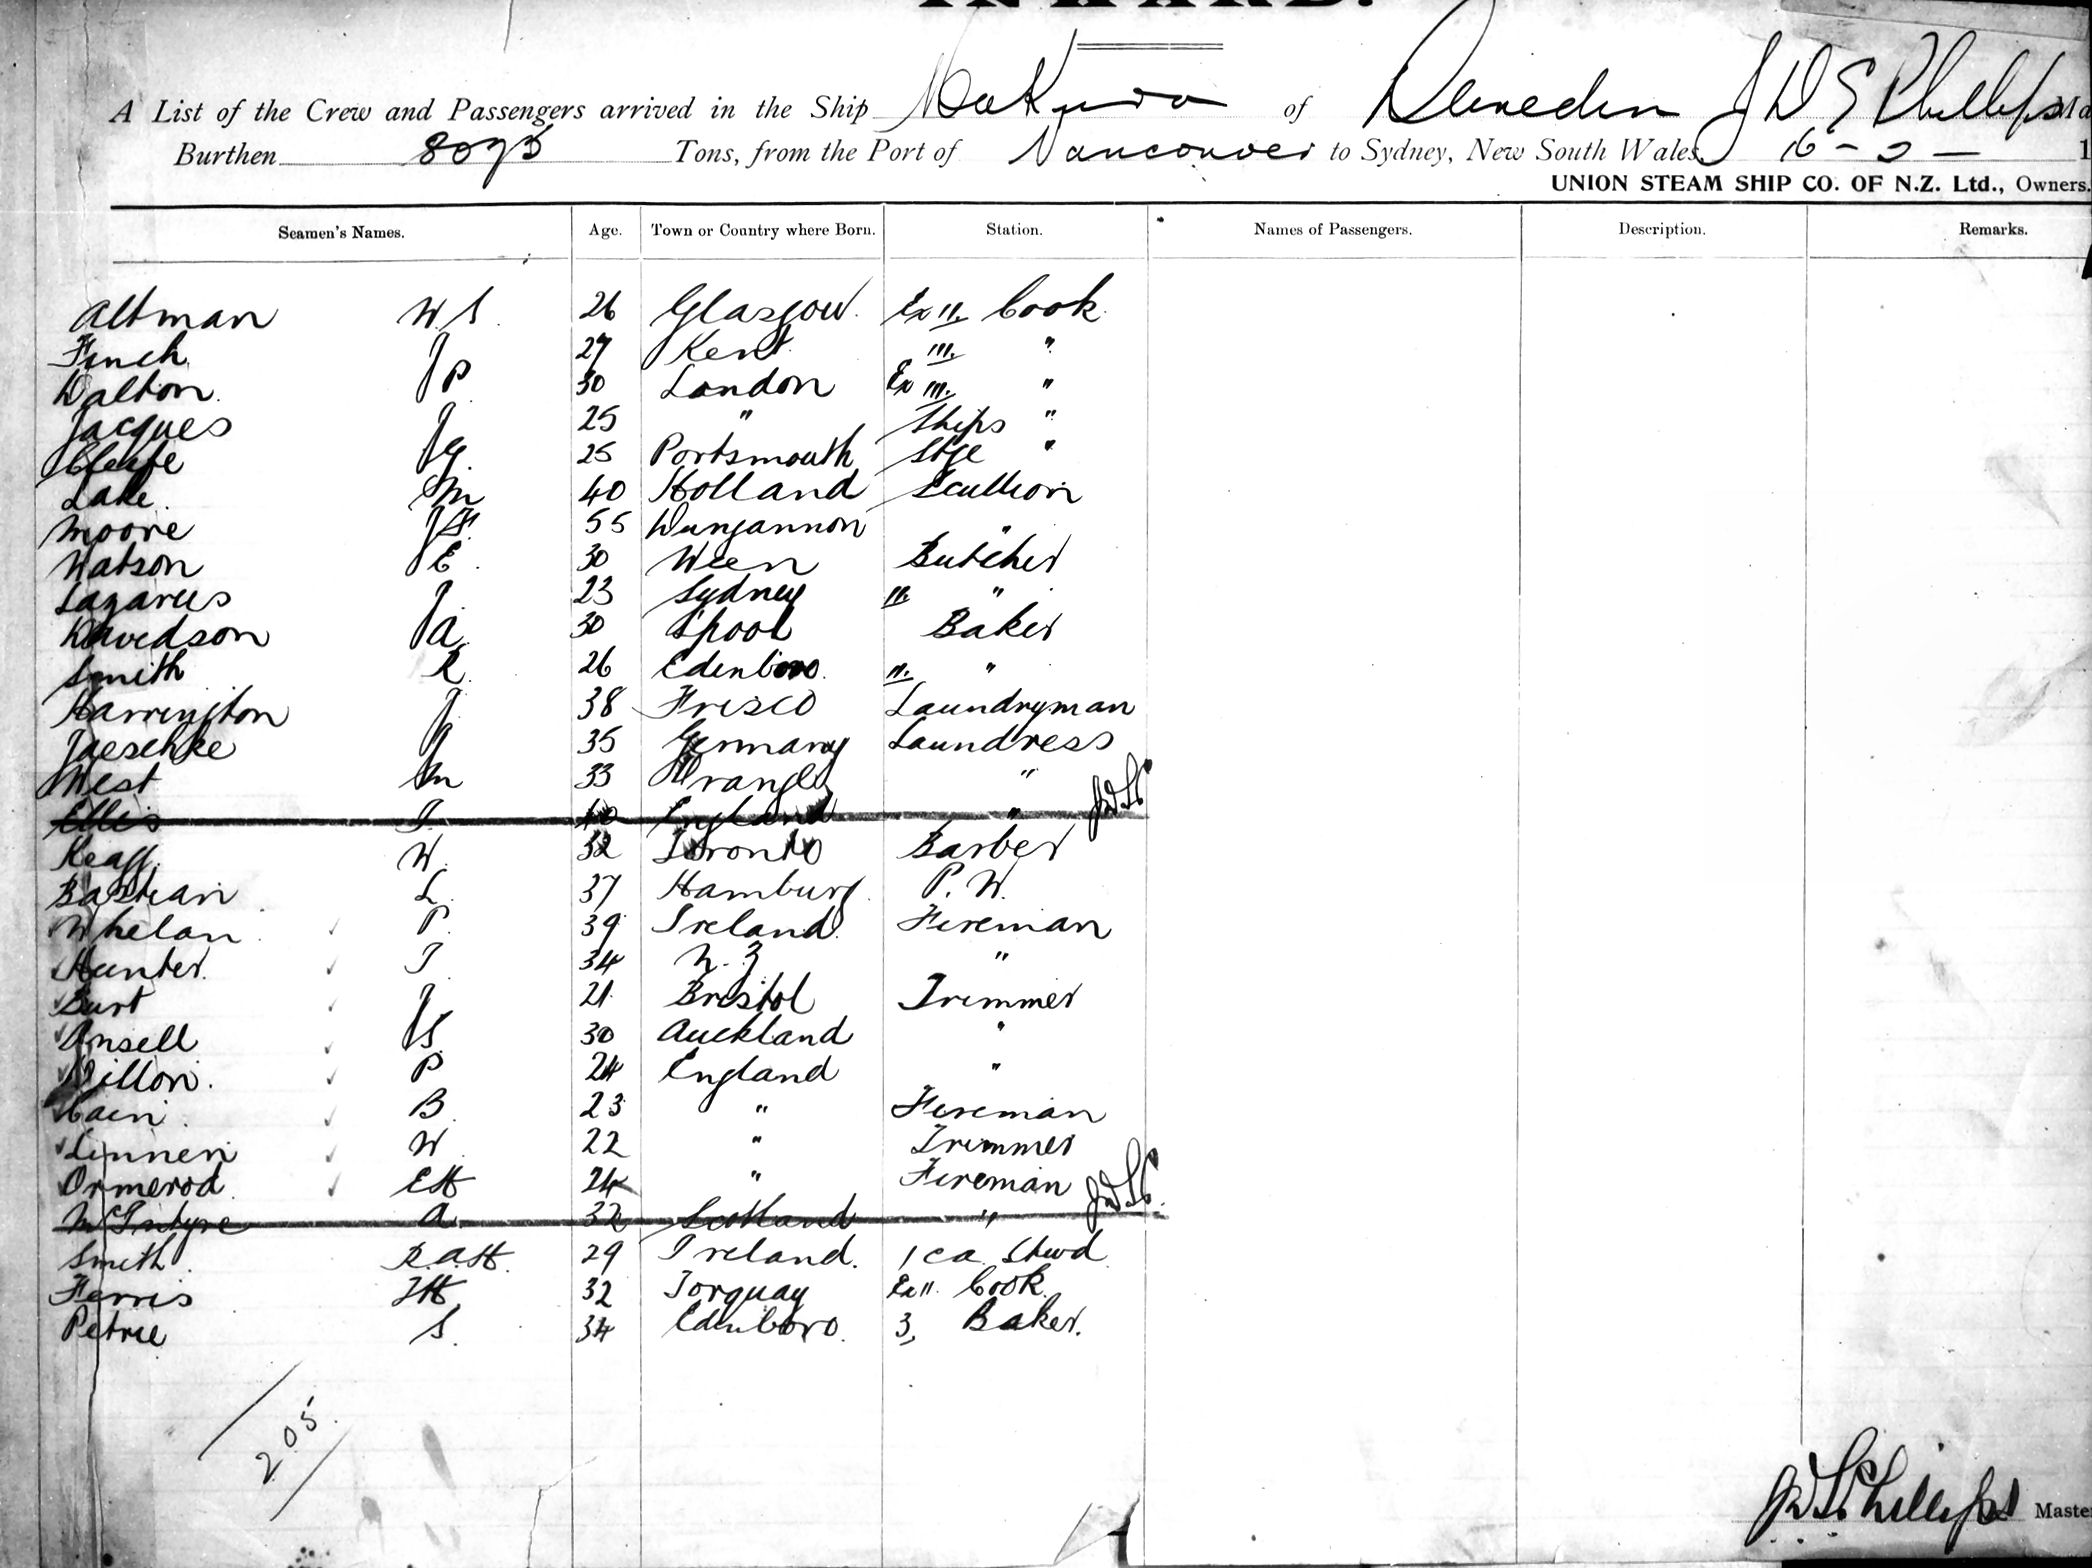 INWARD.
A List of the Crew and Passengers arrived in the Ship Makura of Dunedin J D S Phillips Ma
Burthen 8075 Tons, from the Port of Vancouver to Sydney, New South Wales, 16 - 2 - 1
UNION STEAM SHIP CO. OF N.Z. Ltd., Owners.
Seamen's Names. Age. Town or Country where Born. Station. Names of Passengers. Description. Remarks.
Altman W. S. 26 Glasgow. Ex II. Cook
Finch J 27 Kent III. "
Dalton. J P 30 London Ex III. "
Jacques J 25 " Ships "
J G. 25 Portsmouth Stge "
Lake. M 40 Holland Scullion
Moore J H. 55 Dungannon "
Watson J E. 30 Ween Butcher
Lazarus J. 23 Sydney II. "
Davidson J A. 30 L'pool Baker
Smith R. 26 Edinboro. II. "
Harrington J. 38 Frisco Laundryman
Jaeschke J 35 Germany Laundress
West M 33 Wrangle "
Ellis I. 40 England " JDSP
W. 32 Toronto Barber
Bastian L. 37 Hamburg. P. W.
Whelan. P. 39 Ireland. Fireman
Hunter. T. 34 N. Z "
Burt J. 21. Bristol Trimmer
Ansell J S 30 Auckland "
Dillon. P 24 England "
Cain. B. 23 " Fireman
Linnen W. 22 " Trimmer
Ormerod. E H 24 " Fireman JDSP.
McIntyre A 32 Scotland "
Smith. R. A. H. 29 Ireland. 1 ca. Stwd
Ferris T H 32 Torquay Ex II. Cook.
Petrie S. 34 Edinboro. 3, Baker.
205.
JDSPhillips Master